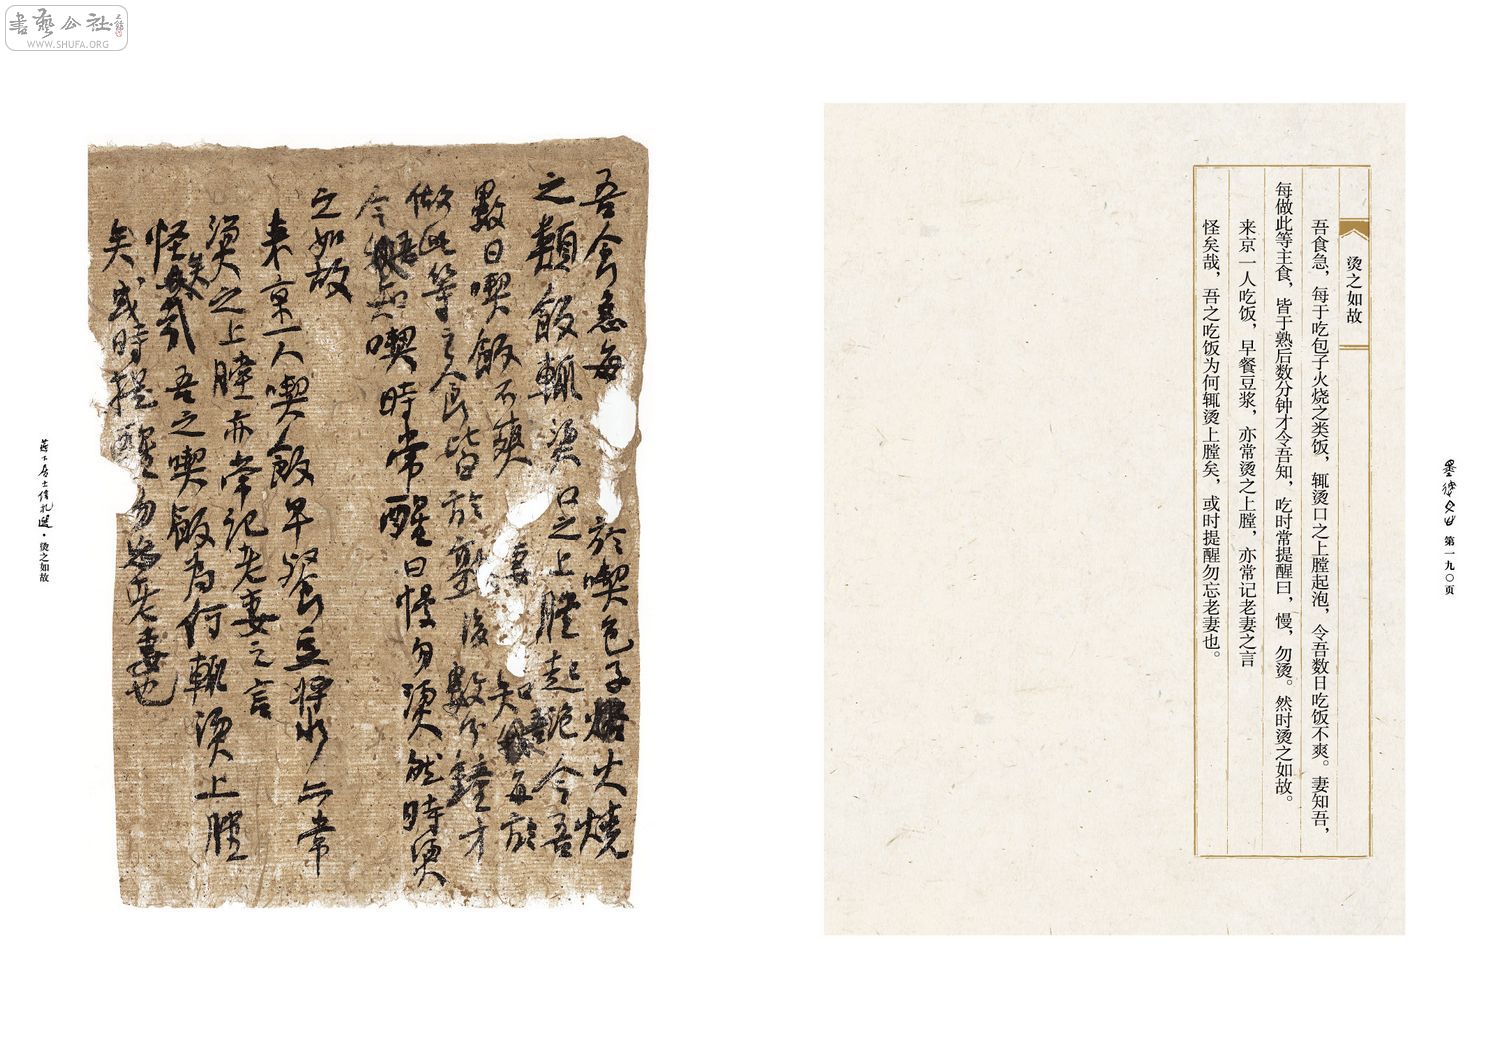 書藝公社
WWW.SHUFA.ORG
烫之如故
吾食急，每于吃包子火烧之类饭，辄烫口之上膛起泡，令吾数日吃饭不爽。妻知吾，
每做此等主食，皆于熟后数分钟才令吾知，吃时常提醒曰，慢，勿烫。然时烫之如故。
来京一人吃饭，早餐豆浆，亦常烫之上膛，亦常记老妻之言
怪矣哉，吾之吃饭为何辄烫上膛矣，或时提醒勿忘老妻也。
第一九〇页
吾食急每於喫包子火燒
之類飯輒燙口之上膛起泡令吾
數日喫飯不爽妻知吾每於
做此等主食皆於熟後數分鐘才
令吾知喫時常醒曰慢勿燙然時燙
之如故
来京一人喫飯早餐豆漿亦常
燙之上膛亦常记老妻之言
怪矣哉吾之喫飯為何輒燙上膛
矣或时提醒勿忘老妻也
·烫之如故